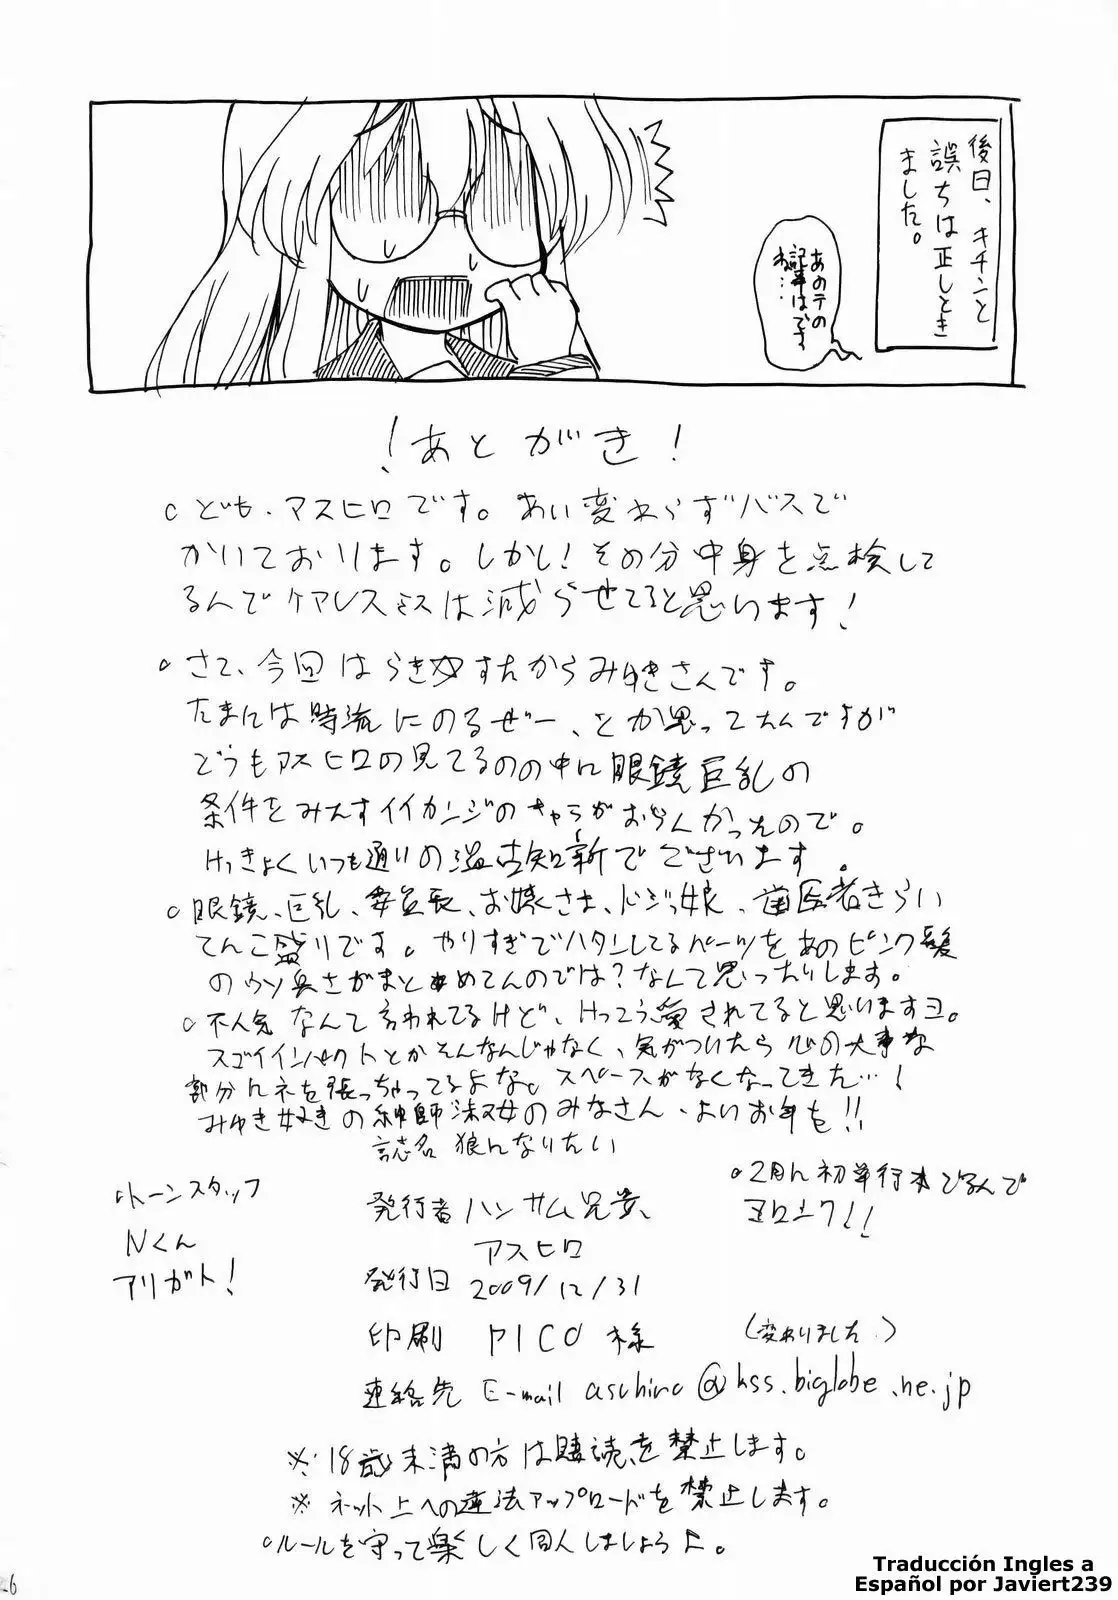 後日、キチンと
誤ちは正しとき
ました。
あのテの
記事はです
ね…
!あとがき!
○ども、アスヒロです。あい変わらずバスで
かいております。しかし!その分中身を点検して
るんでケアレスミスは減らせてると思います!
○さて、今回はらき☆すたからみゆきさんです。
たまには時流にのるぜー、とか思ってたんですが
どうもアスヒロの見てるのの中に眼鏡巨乳の
条件をみたすイイカンジのキャラがおらんかったので。
けっきょくいつも通りの温古知新でございます。
○眼鏡、巨乳、委員長、お嬢さま、ドジっ娘、歯医者きらい
てんこ盛りです。やりすぎでハタンしてるパーツをあのピンク髪
のウソ臭さがまとめてんのでは?なんて思ったりします。
○不人気なんて言われてるけど、けっこう愛されてると思いますヨ。
スゴイインパクトとかそんなんじゃなく、気がついたら心の大事な
部分にネを張っちゃってるよな。スペースがなくなってきた…!
みゆき好きの紳師淑女のみなさん、よいお年を!!
誌名 狼になりたい
○トーンスタッフ
Nくん
アリガト!
発行者 ハンサム兄貴、
アスヒロ
○2月に初単行本でるんで
ヨロシク!!
発行日 2009/12/31
印刷 PICO 様
(変わりました)
連絡先 E-mail asuhiro@kss.biglobe.ne.jp
※18歳未満の方は購読を禁止します。
※ネット上への違法アップロードを禁止します。
○ルールを守って楽しく同人しましょうよ。
26
Traducción Ingles a
Español por Javiert239